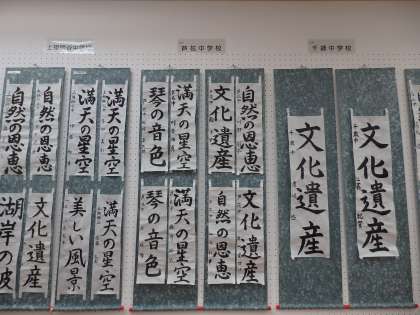 芦花中学校
千歳中学校
自然の恩恵
自然の恩恵
満天の星空
満天の星空
琴の音色
満天の星空
文化遺産
自然の恩恵
文化遺産
文化遺産
湖岸の波
文化遺産
美しい風景
満天の星空
琴の音色
満天の星空
自然の恩恵
文化遺産